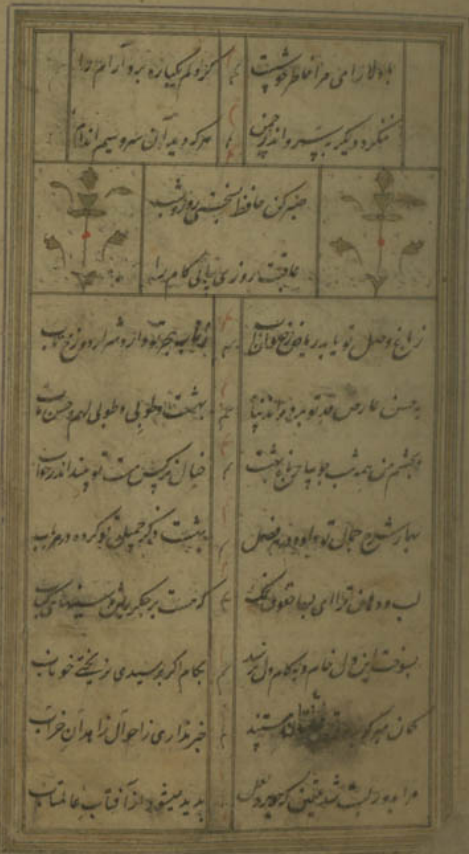 با دلارامی مرا خاطر خوشست کز دلم یکباره برد آرام را
ننگرد دیگر بسرو اندر چمن هر که دید آن سرو سیم اندام را
صبر کن حافظ بسختی روز و شب
عاقبت روزی بیابی کام را
ز باغ وصل تو یابد ریاض رضوان آب ز تاب هجر تو دارد شرار دوزخ تاب
بحسن عارض و قد تو برده‌اند پناه بهشت و طوبی و طوبی لهم و حسن مآب
چو چشم من همه شب جویبار باغ بهشت خیال نرگس مست تو بیند اندر خواب
بهار شرح جمال تو داده در هر فصل بهشت ذکر جمیل تو کرده در هر باب
لب و دهان ترا ای بسا حقوق نمک که هست بر جگر ریش و سینهای کباب
بسوخت این دل خام و بکام دل نرسید بکام اگر برسیدی نریختی خوناب
گمان مبر که بدور تو عاشقان مستند خبر نداری ز احوال زاهدان خراب
مرا بدور لبت شد یقین که جوهر لعل پدید میشود از آفتاب عالمتاب